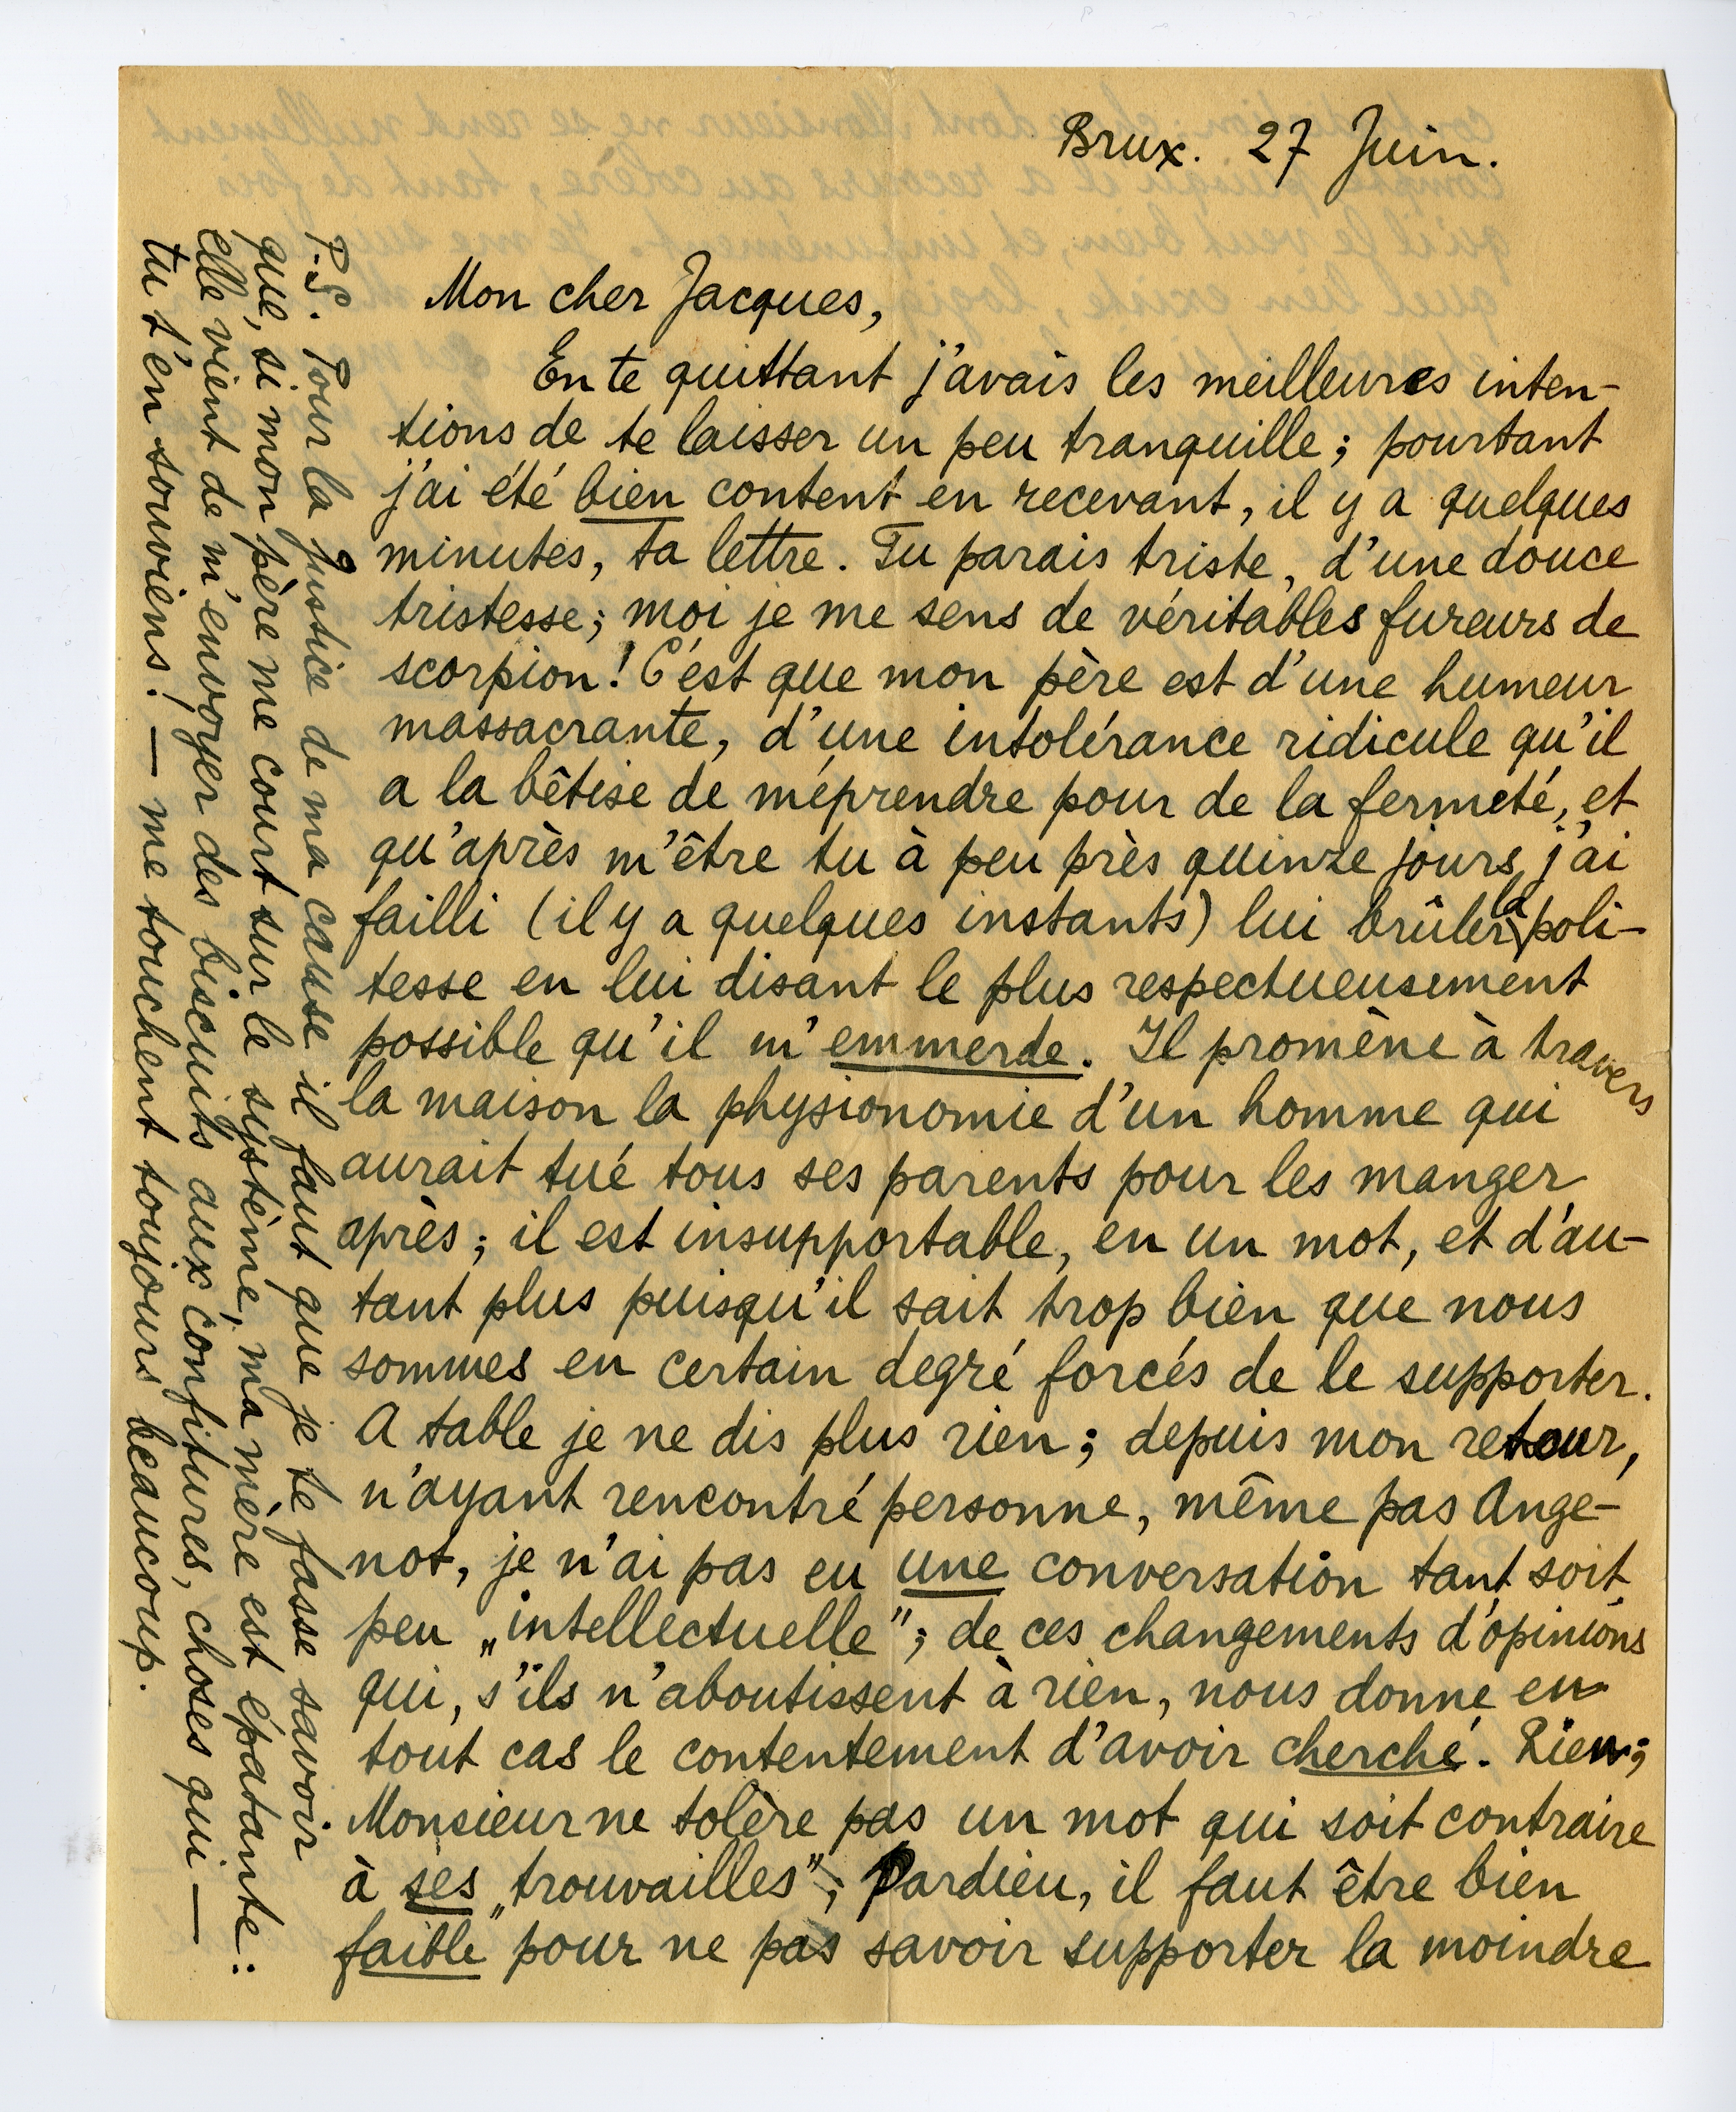 Brux. 27 Juin.
Mon cher Jacques,
En te quittant j'avais les meilleures inten-
tions de te laisser un peu tranquille; pourtant
j'ai été bien content en recevant, il y a quelques
minutes, ta lettre. Tu parais triste, d'une douce
tristesse; moi je me sens de véritables fureurs de
scorpion! C'est que mon père est d'une humeur
massacrante, d'une intolérance ridicule qu'il
a la bêtise de méprendre pour de la fermeté, et
qu'après m'être tu à peu près quinze jours j'ai
failli (il y a quelques instants) lui brûler la poli-
tesse en lui disant le plus respectueusement
possible qu'il m'emmerde. Il promène à travers
la maison la physionomie d'un homme qui
aurait tué tous ses parents pour les manger
après; il est insupportable, en un mot, et d'au-
tant plus puisqu'il sait trop bien que nous
sommes en certain degré forcés de le supporter.
A table je ne dis plus rien; depuis mon retour,
n'ayant rencontré personne, même pas Ange-
not, je n'ai pas eu une conversation tant soit
peu „intellectuelle"; de ces changements d'opinions
qui, s'ils n'aboutissent à rien, nous donne en
tout cas le contentement d'avoir cherché. Rien;
Monsieur ne tolère pas un mot qui soit contraire
à ses „trouvailles"; Pardieu, il faut être bien
faible pour ne pas savoir supporter la moindre
P.S. Pour la justice de ma cause il faut que je te fasse savoir
que, si mon père me court sur le système, ma mère est épatante:
elle vient de m'envoyer des biscuits aux confitures, choses qui —
tu t'en souviens! — me touchent toujours beaucoup.